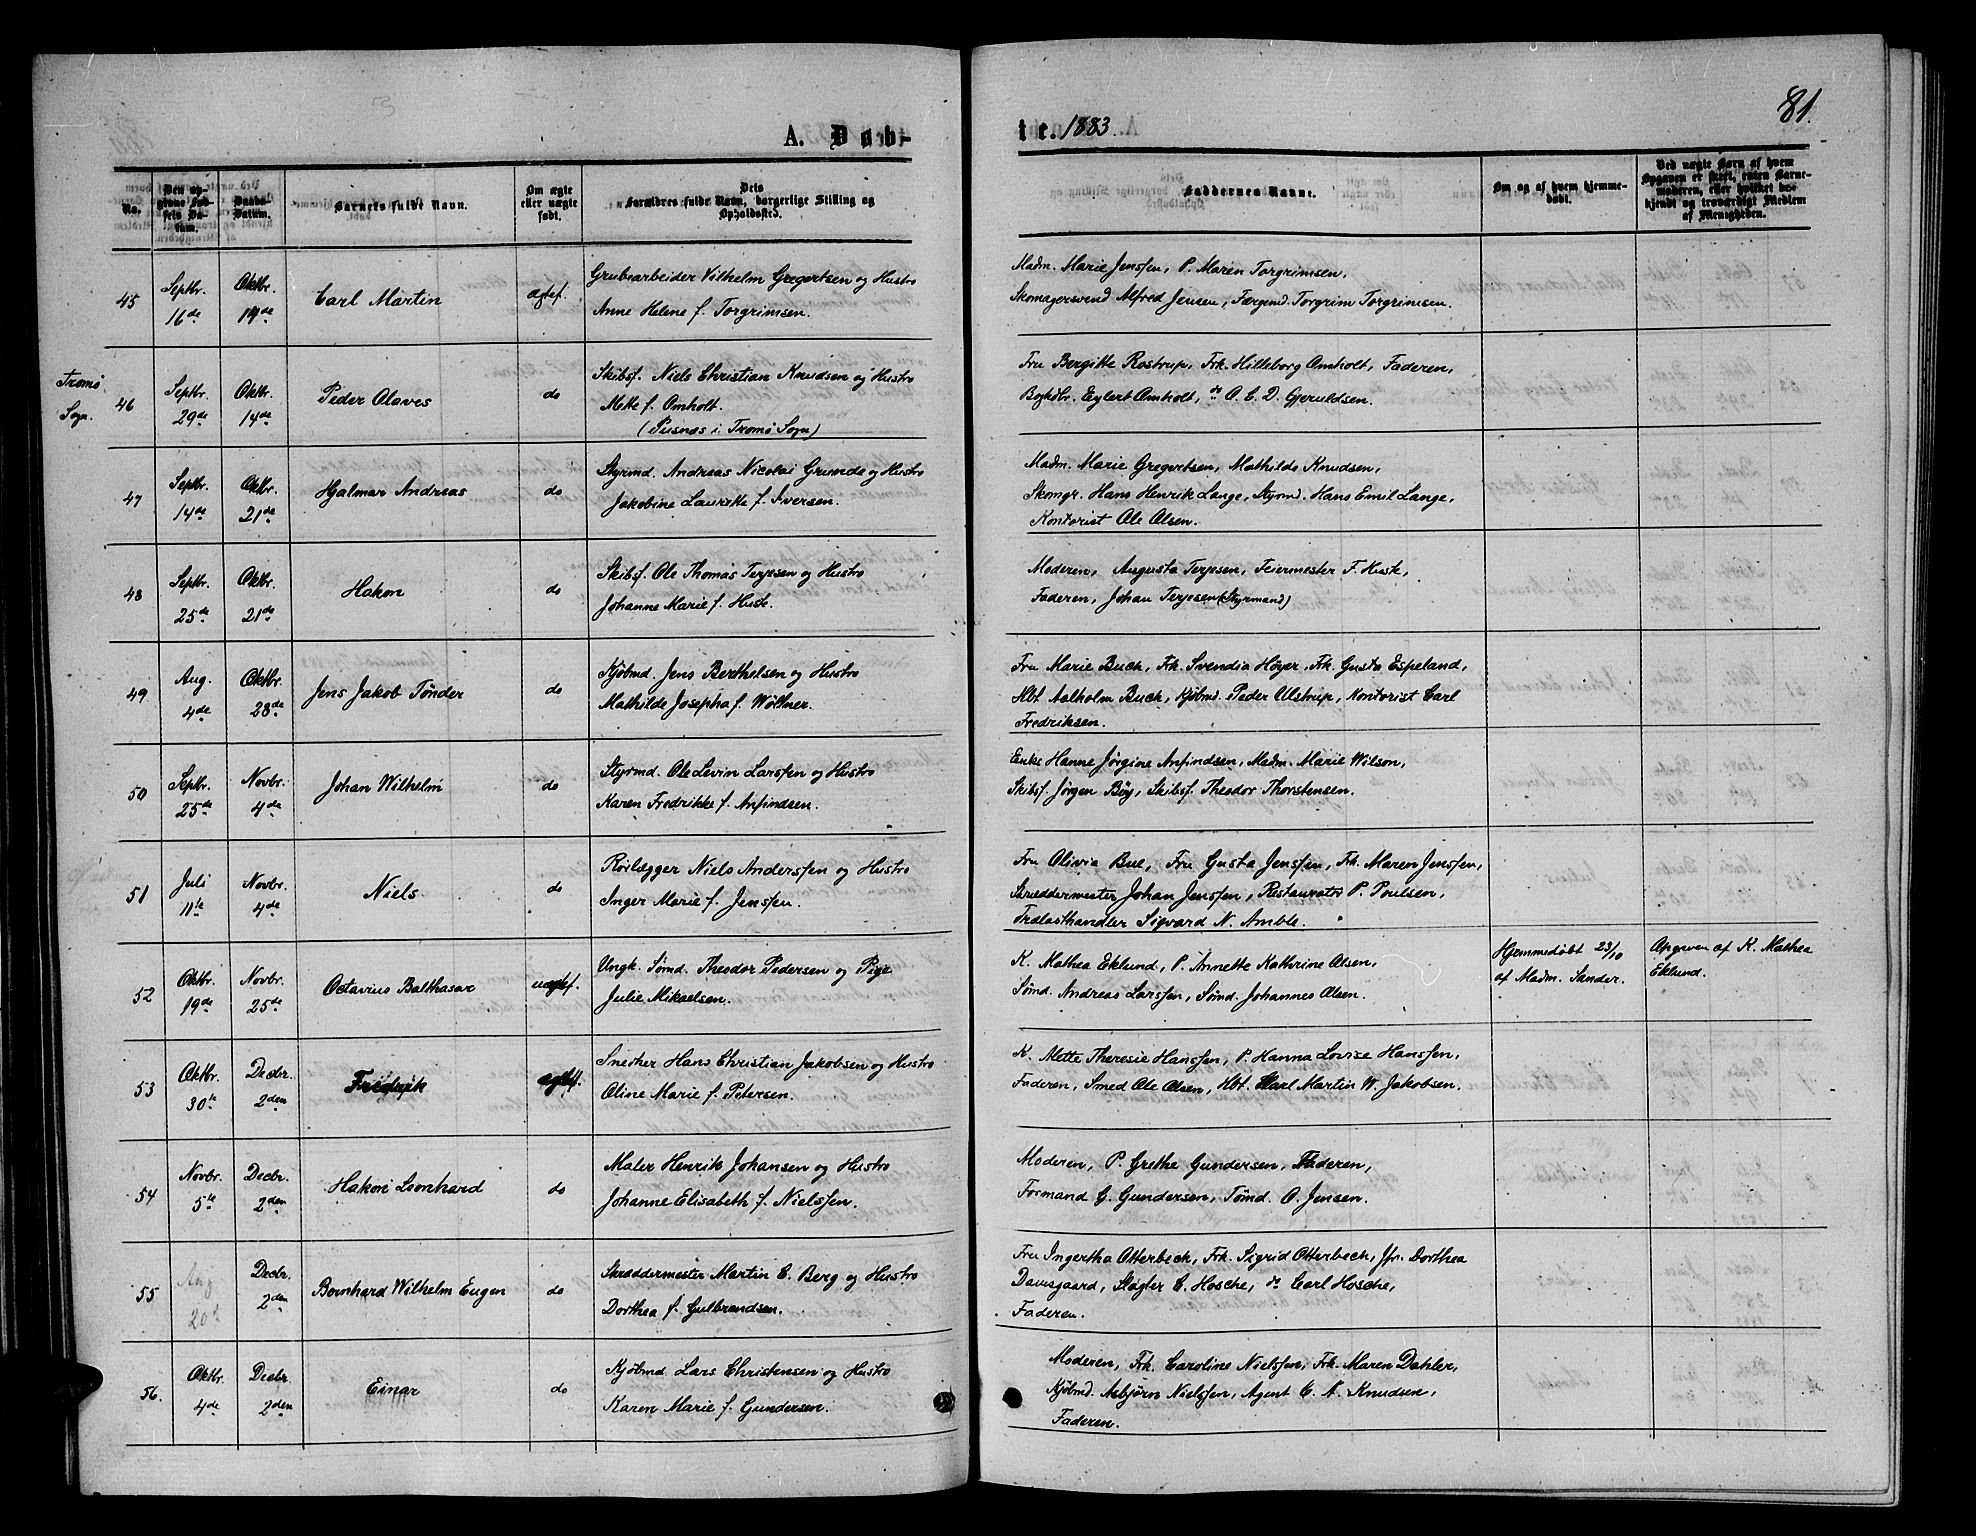 81.
A. Døb-
te. 1883.
No.
Den opgivne Fødsels Datum.
Daabs-Datum.
Barnets fulde Navn.
Om ægte eller uægte født.
Dets Forældres fulde Navn, borgerlige Stilling og Opholdssted.
Faddernes Navne.
Om og af hvem hjemmedøbt.
Ved uægte Børn af hvem Opgaven er skeet, enten Barnemoderen, eller hvilket bekjendt og troværdigt Medlem af Menigheden.
45
Septbr. 16de
Oktbr. 14de
Carl Martin
ægtef.
Grubearbeider Vilhelm Gregertsen og Hustru
Anne Helene f. Torgrimsen.
Madm. Marie Jenssen, P. Maren Torgrimsen,
Skomagersvend Alfred Jensen, Færgemd. Torgrim Torgrimsen.
Tromø
Sogn.
46
Septbr. 29de
Oktbr. 14de
Peder Olaves
do
Skibsf. Niels Christian Knudsen og Hustro
Mette f. Omholt.
(Pusnæs i Tromø Sogn)
Fru Bergitte Rostrup, Frk. Hilleborg Omholt, Faderen,
Eylert Omholt, do O. E. D. Gjeruldsen.
47
Septbr. 14de
Oktbr. 21de
Hjalmar Andreas
do
Styrmd. Andreas Nicolai Grunde og Hustro
Jakobine Laurette f. Iversen.
Madm. Marie Gregertsen, Mathilde Knudsen,
Skomgr. Hans Henrik Lange, Styrmd. Hans Emil Lange,
Kontorist Ole Olsen.
48
Septbr. 25de
Oktbr. 21de
Hakon
do
Skibsf. Ole Thomas Terjesen og Hustro
Johanne Marie f. Huste.
Moderen, Augusta Terjesen, Feiermester F. Huste,
Faderen, Johan Terjesen (Styrmand)
49
Aug. 4de
Oktbr. 28de
Jens Jakob Tönder
do
Kjöbmd. Jens Berthelsen og Hustro
Mathilde Josepha f. Wöltner.
Fru Marie Buch, Frk. Svendia Höyer, Frk. Gusta Espeland,
Hbf. Aalholm Buch, Kjöbmd. Peder Ulstrup, Kontorist Carl
Fredriksen.
50
Septbr. 25de
Novbr. 4de
Johan Wilhelm
do
Styrmd. Ole Levin Larssen og Hustro
Karen Fredrikke f. Anfindsen.
Enke Hanne Jörgine Anfindsen, Madm. Marie Wilson,
Skibsf. Jörgen Böy, Skibsf. Theodor Thorstensen.
51
Juli 11te
Novbr. 4de
Niels
do
Rörlægger Niels Anderssen og Hustro
Inger Marie f. Jenssen.
Fru Olivia Bue, Fru Gusta Jenssen, Frk. Maren Jenssen,
Skræddermester Johan Jenssen, Restauratør P. Poulsen,
Trælasthandler Sigvard N. Amble.
52
Oktbr. 19de
Novbr. 25de
Octavius Balthasar
uægtef.
Ungk. Sömd. Theodor Pedersen og Pige
Julie Mikaelsen.
K. Mathea Eklund, P. Annette Kathrine Olsen,
Sömd. Andreas Larssen, Sömd. Johannes Olsen.
Hjemmedöbt 23/10
af Madm. Sander.
Opgaven af K. Mathea
Eklund.
53
Oktbr. 30te
Decbr. 2den
Fredrik
ægtef.
Snedker Hans Christian Jakobsen og Hustro
Oline Marie f. Petersen.
K. Mette Theresie Hanssen, P. Hanna Lovise Hanssen,
Faderen, Smed Ole Olsen, Hbf. Karl Martin W. Jakobsen.
54
Novbr. 5te
Decbr. 2den
Hakon Leonhard
do
Maler Henrik Johansen og Hustro
Johanne Elisabeth f. Nielssen.
Moderen, P. Grethe Gundersen, Faderen,
Formand G. Gundersen, Tömd. O. Jensen.
55
Aug 20d
Decbr. 2den
Bernhard Wilhelm Eugen
do
Skræddermester Martin C. Berg og Hustro
Dorthea f. Gulbrandsen.
Fru Ingertha Otterbech, Frk. Sigrid Otterbech, Jfr. Dorthea
Davsgaard, Slagter C. Hosche, do Carl Hosche,
Faderen.
56.
Oktbr. 4de
Decbr. 2den
Einar
do
Kjöbmd Lars Christensen og Hustro
Karen Marie f. Gundersen.
Moderen, Frk. Caroline Nielssen, Frk. Maren Dahler,
Kjöbmd. Asbjørn Nielssen, Agent C. A. Knudsen,
Faderen.